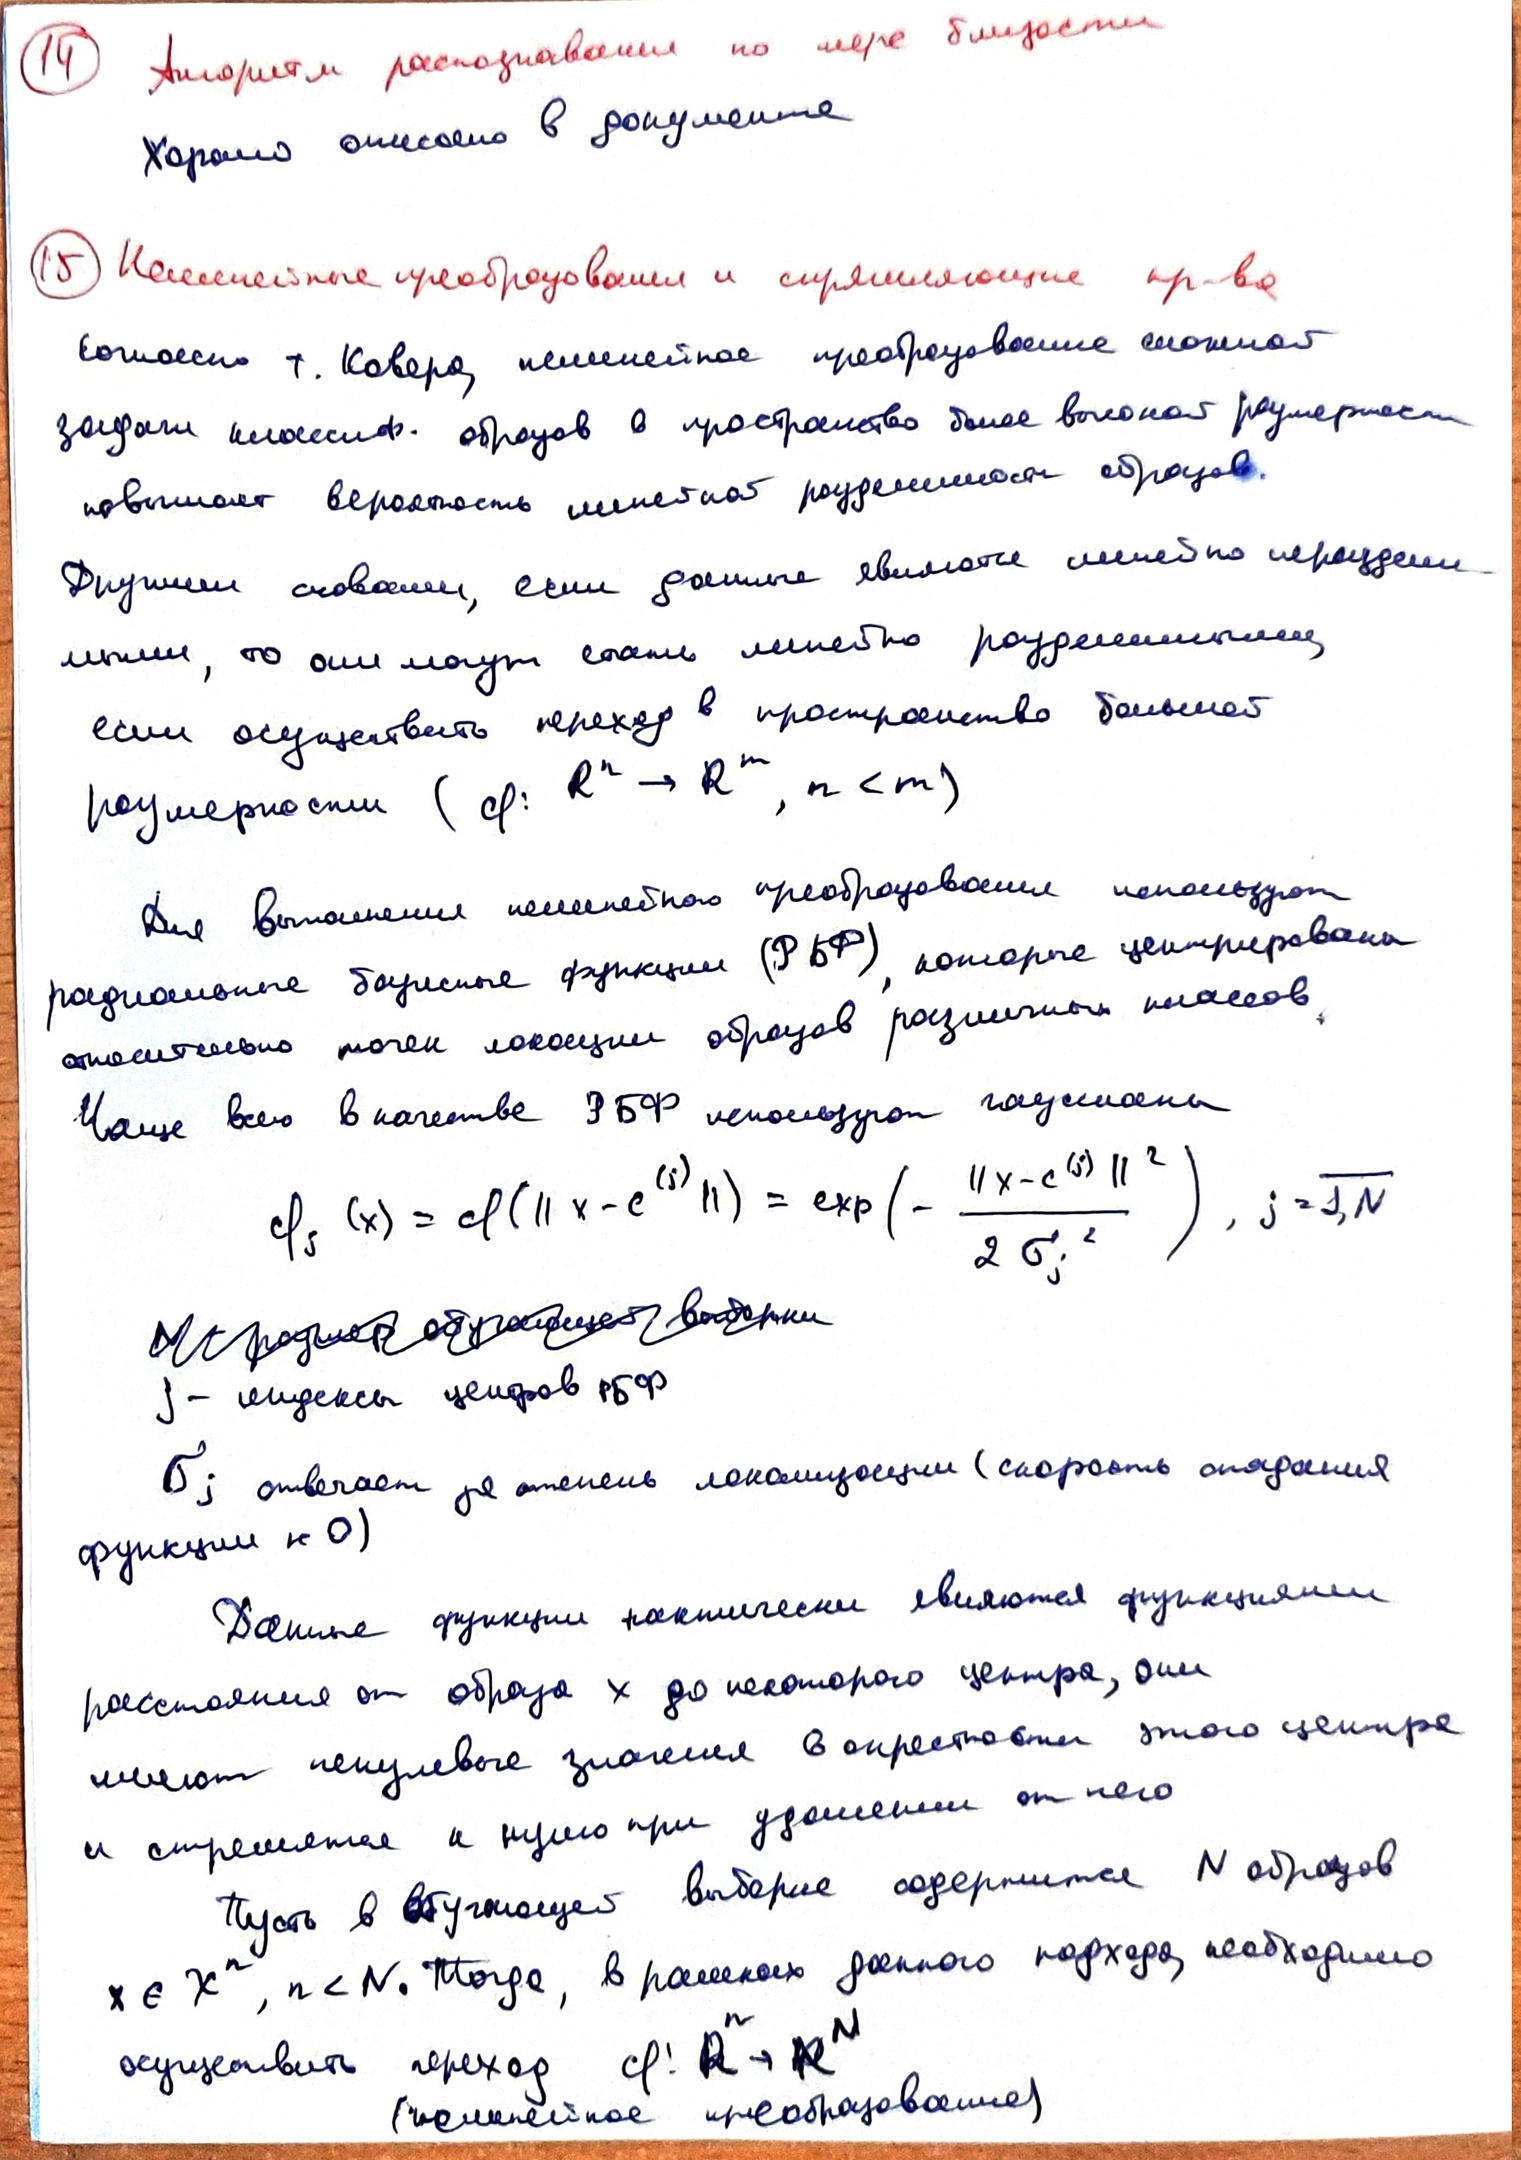 14 Алгоритм распознавания по мере близости
Хорошо описано в документе
15 Нелинейные преобразования и спрямляющие пр-ва
Согласно т. Ковера, нелинейное преобразование сложной
задачи классиф. образов в пространство более высокой размерности
повышает вероятность линейной разделимости образов.
Другими словами, если данные являются линейно неразделi-
мыми, то они могут стать линейно разделимыми,
если осуществить переход в пространство большей
размерности (φ: R^n → R^m, n < m)
Для выполнения нелинейного преобразования используют
радиальные базисные функции (РБФ), которые центрированы
относительно точек локации образов различных классов.
Чаще всего в качестве РБФ используют гауссианы
φ_j (x) = φ(||x - c^(j)||) = exp(- ||x - c^(j)||² / 2σ_j²), j = 1,N
N - размер обучающей выборки
j - индексы центров РБФ
σ_j отвечает за степень локализации (скорость спадания
функции к 0)
Данные функции фактически являются функциями
расстояния от образа x до некоторого центра, они
имеют ненулевые значения в окрестности этого центра
и стремятся к нулю при удалении от него
Пусть в обучающей выборке содержится N образов
x ∈ X^n, n < N. Тогда, в рамках данного подхода, необходимо
осуществить переход φ: R^n → R^N
(нелинейное преобразование)